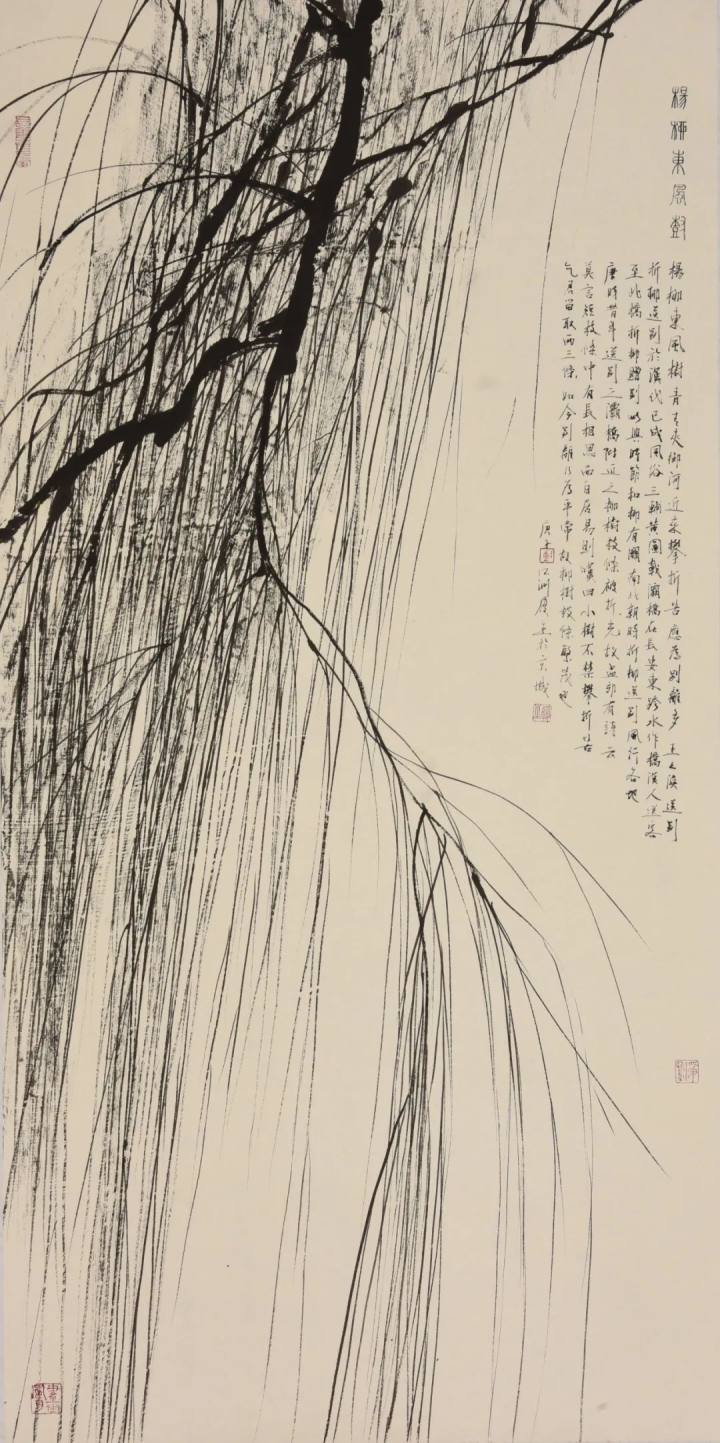 楊柳東風樹
楊柳東風樹青青夾御河近來攀折苦應為別離多王之渙送別
折柳送別於漢代已成風俗三輔黃圖載灞橋在長安東跨水作橋漢人送客
至此橋折柳贈別與時節和柳有關南北朝時折柳送別風行各地
唐時昔年送別之灞橋附近之柳樹枝條被折光故孟郊有詩云
莫言短枝條中有長相思而白居易則嘆曰小樹不禁攀折苦
乞君留取兩三條如今別離乃為平常故柳樹枝條聚茂也
庚子 於京城